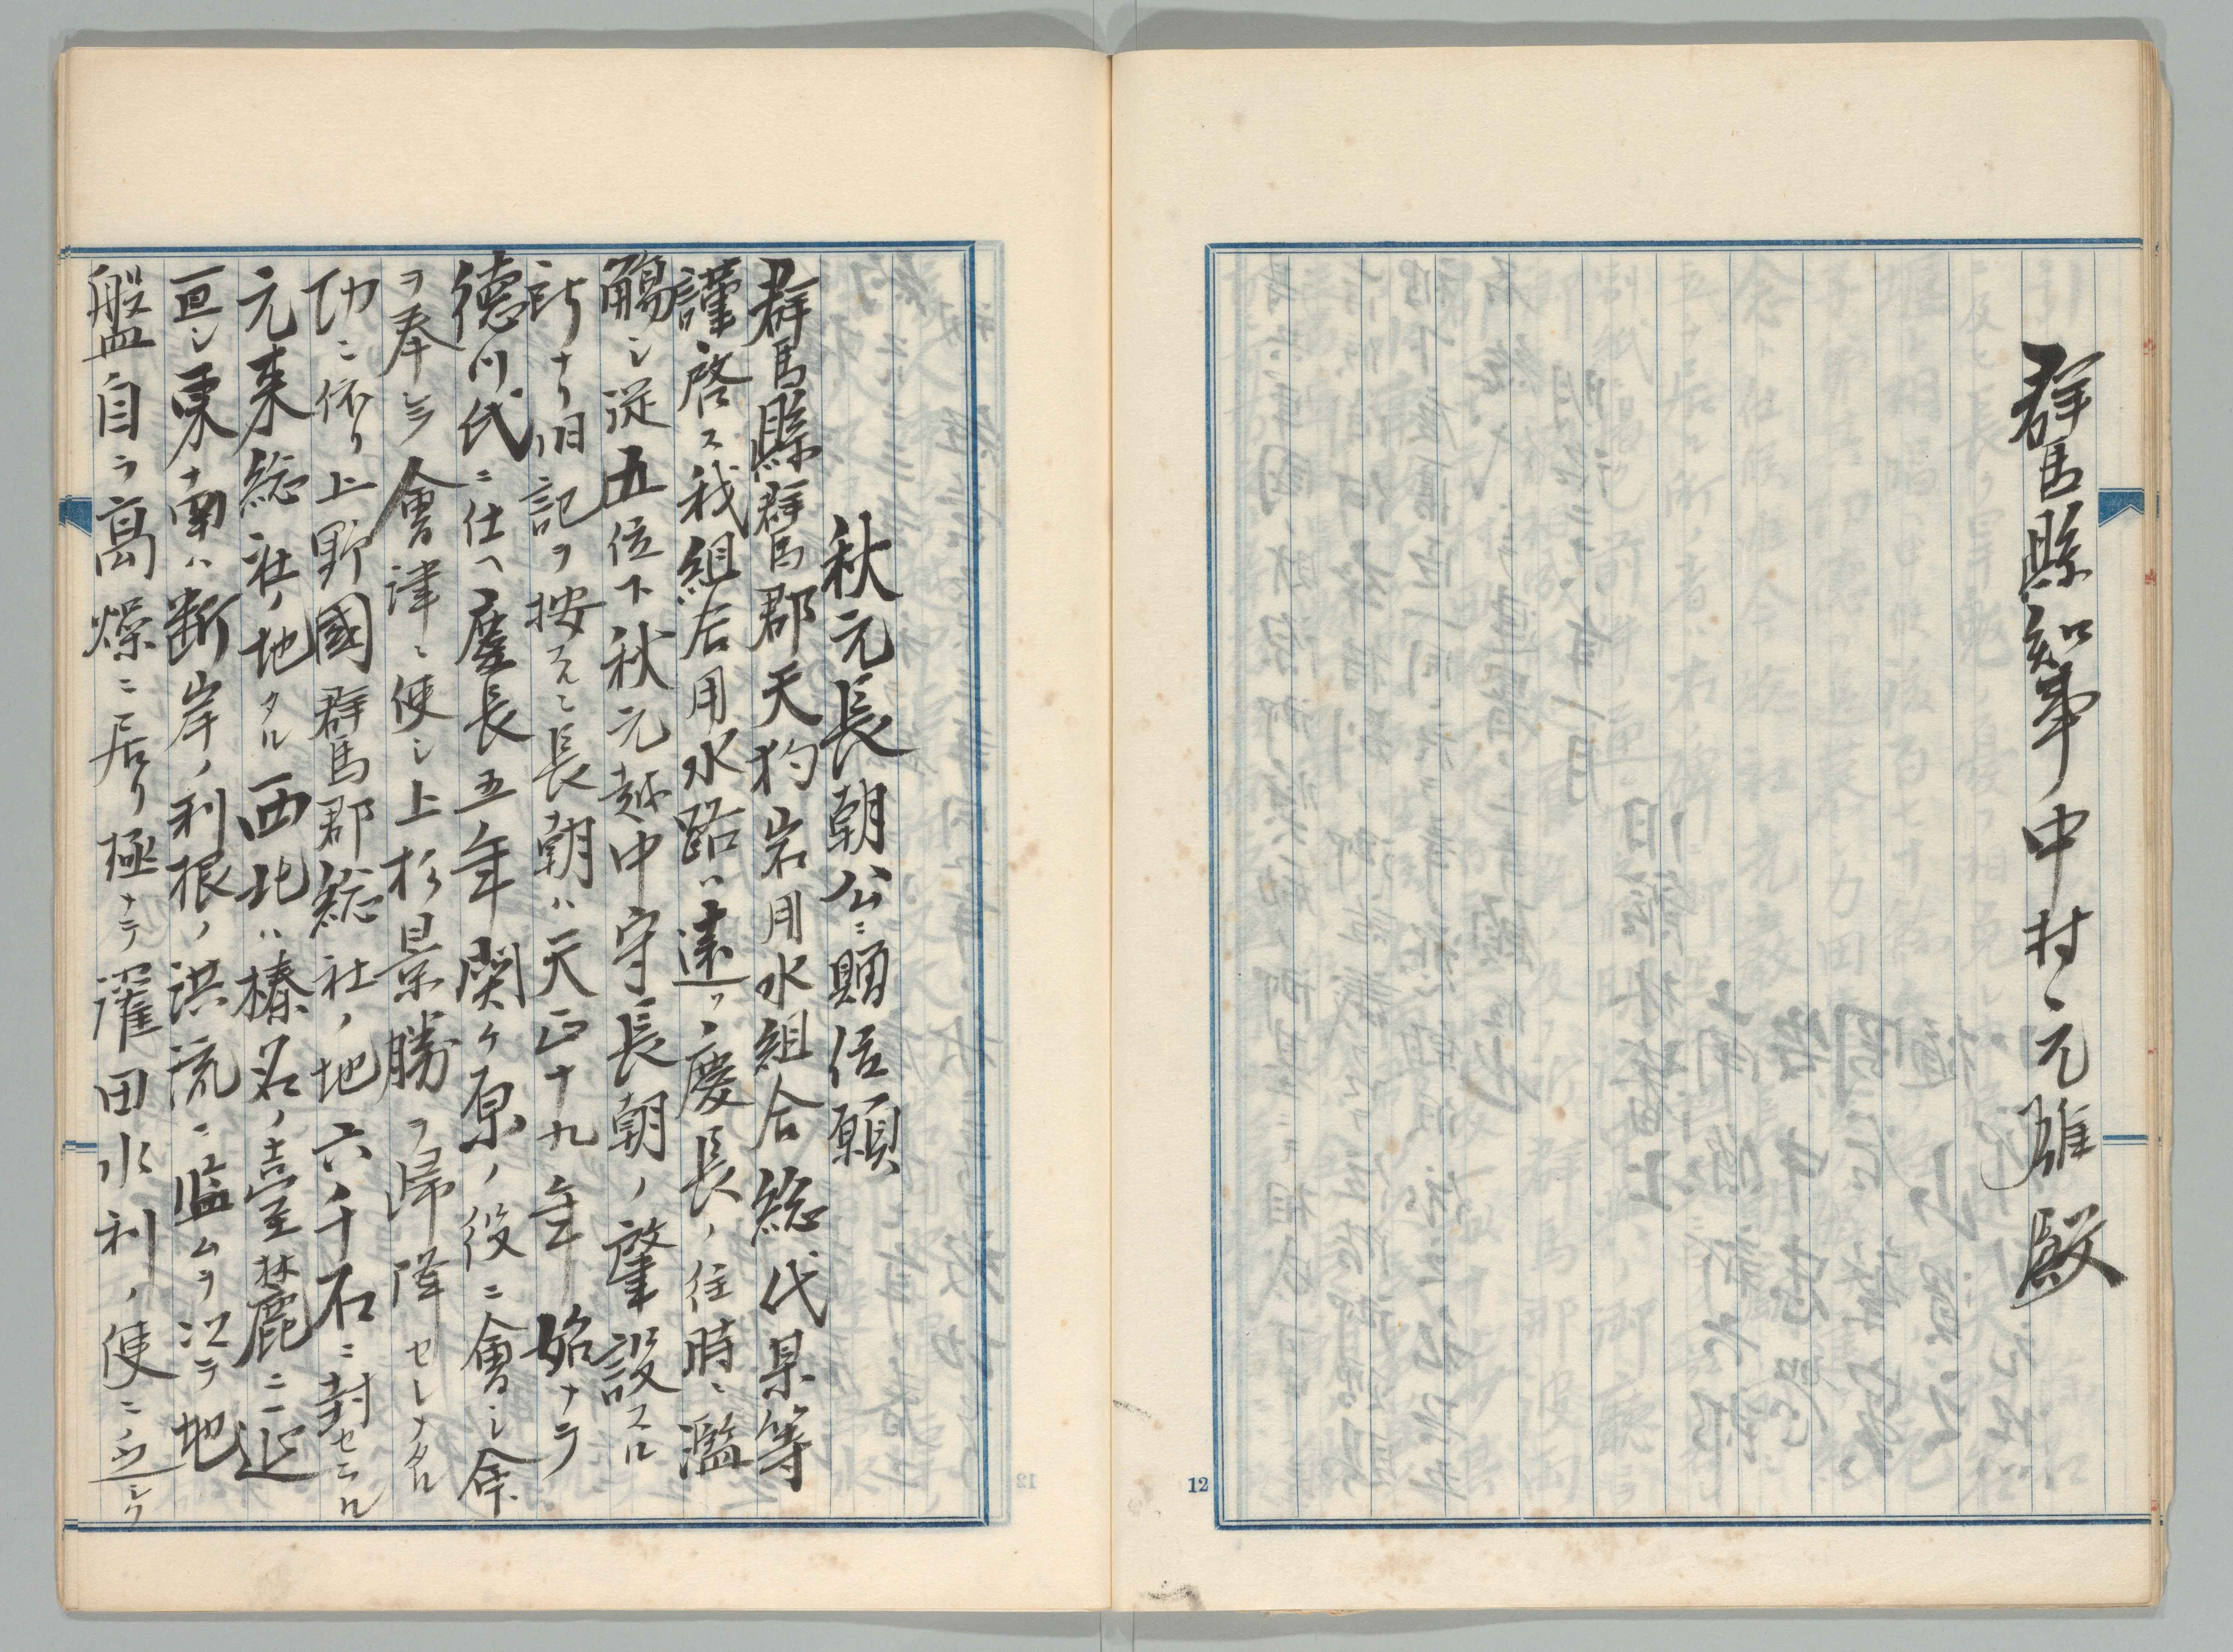 群馬縣知事中村元雄殿
12
秋元長朝公ニ贈位願
群馬縣群馬郡天狗岩用水組合総代某等
謹啓ス我組居用水路ハ遠ク慶長ノ往時ニ濫
觴シ従五位下秋元越中守長朝ノ肇設スル
所ナリ旧記ヲ按スルニ長朝ハ天正十九年始テ
徳川氏ニ仕ヘ慶長五年関ケ原ノ役ニ會シ命
ヲ奉シテ會津ニ使シ上杉景勝ヲ帰降セシメタル
功ニ依リ上野國群馬郡総社ノ地六千石ニ封セラル
元来総社ノ地タル西北ハ榛名ノ臺麓ニ近
直シ東南ハ断岸ノ利根ノ洪流ニ臨ムヲ以テ地
盤自ラ高燥ニ居リ極テ灌田水利ノ便ニ乏シク